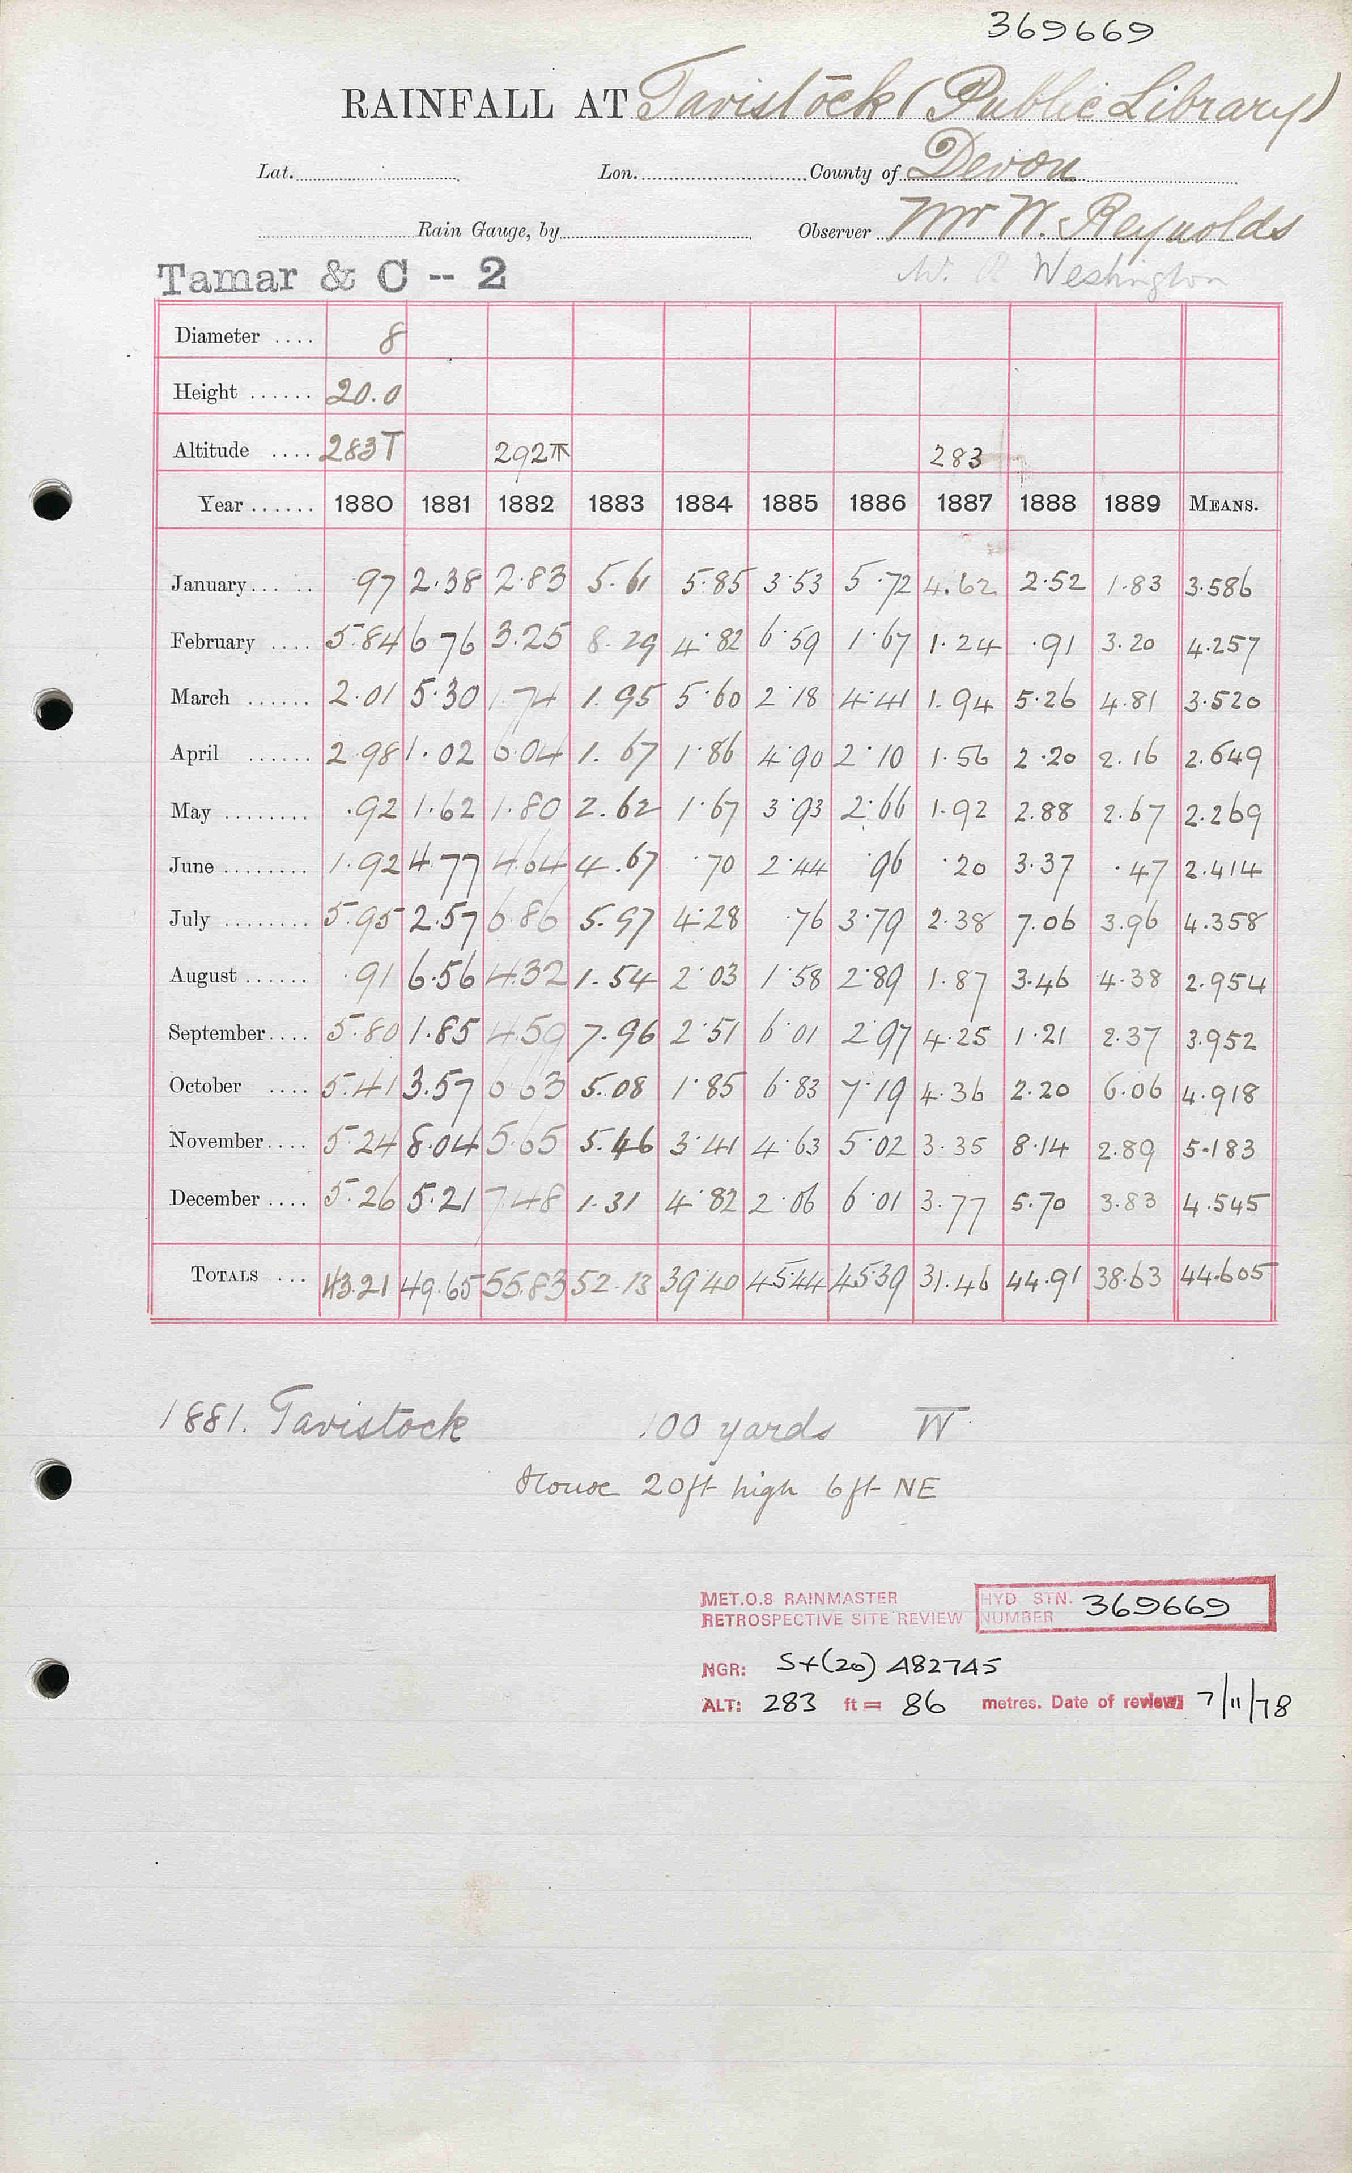 369669
RAINFALL AT Tavistock (Public Library)
Lat. Lon. County of Devon
Rain Gauge, by Observer Mr W. Reynolds
Tamar & C -- 2 Westington
Diameter .... 8
Height ...... 20.0
Altitude .... 283T 292 283
Year ...... 1880 1881 1882 1883 1884 1885 1886 1887 1888 1889 MEANS.
January .97 2.38 2.83 5.61 5.85 3.53 5.72 4.62 2.52 1.83 3.586
February .... 5.84 6.76 3.25 8.29 4.82 6.59 1.67 1.24 .91 3.20 4.257
March ...... 2.01 5.30 1.74 1.95 5.60 2.18 4.41 1.94 5.26 4.81 3.520
April ...... 2.98 1.02 6.04 1.67 1.86 4.90 2.10 1.56 2.20 2.16 2.649
May ........ .92 1.62 1.80 2.62 1.67 3.93 2.66 1.92 2.88 2.67 2.269
June ........ 1.92 4.77 4.64 4.67 .70 2.44 .96 .20 3.37 .47 2.414
July ........ 5.95 2.57 6.86 5.97 4.28 .76 3.79 2.38 7.06 3.96 4.358
August ...... .91 6.56 4.32 1.54 2.03 1.58 2.89 1.87 3.46 4.38 2.954
September.... 5.80 1.85 4.59 7.96 2.51 6.01 2.97 4.25 1.21 2.37 3.952
October .... 5.41 3.57 6.63 5.08 1.85 6.83 7.19 4.36 2.20 6.06 4.918
November.... 5.24 8.04 5.65 5.46 3.41 4.63 5.02 3.35 8.14 2.89 5.183
December .... 5.26 5.21 7.48 1.31 4.82 2.06 6.01 3.77 5.70 3.83 4.545
TOTALS ... 43.21 49.65 55.83 52.13 39.40 45.44 45.39 31.46 44.91 38.63 44.605
1881. Tavistock 100 yards W
House 20ft high 6ft NE
MET.O.8 RAINMASTER HYD STN.
RETROSPECTIVE SITE REVIEW NUMBER 369669
NGR: SX(20) 482745
ALT: 283 ft = 86 metres. Date of review: 7/11/78